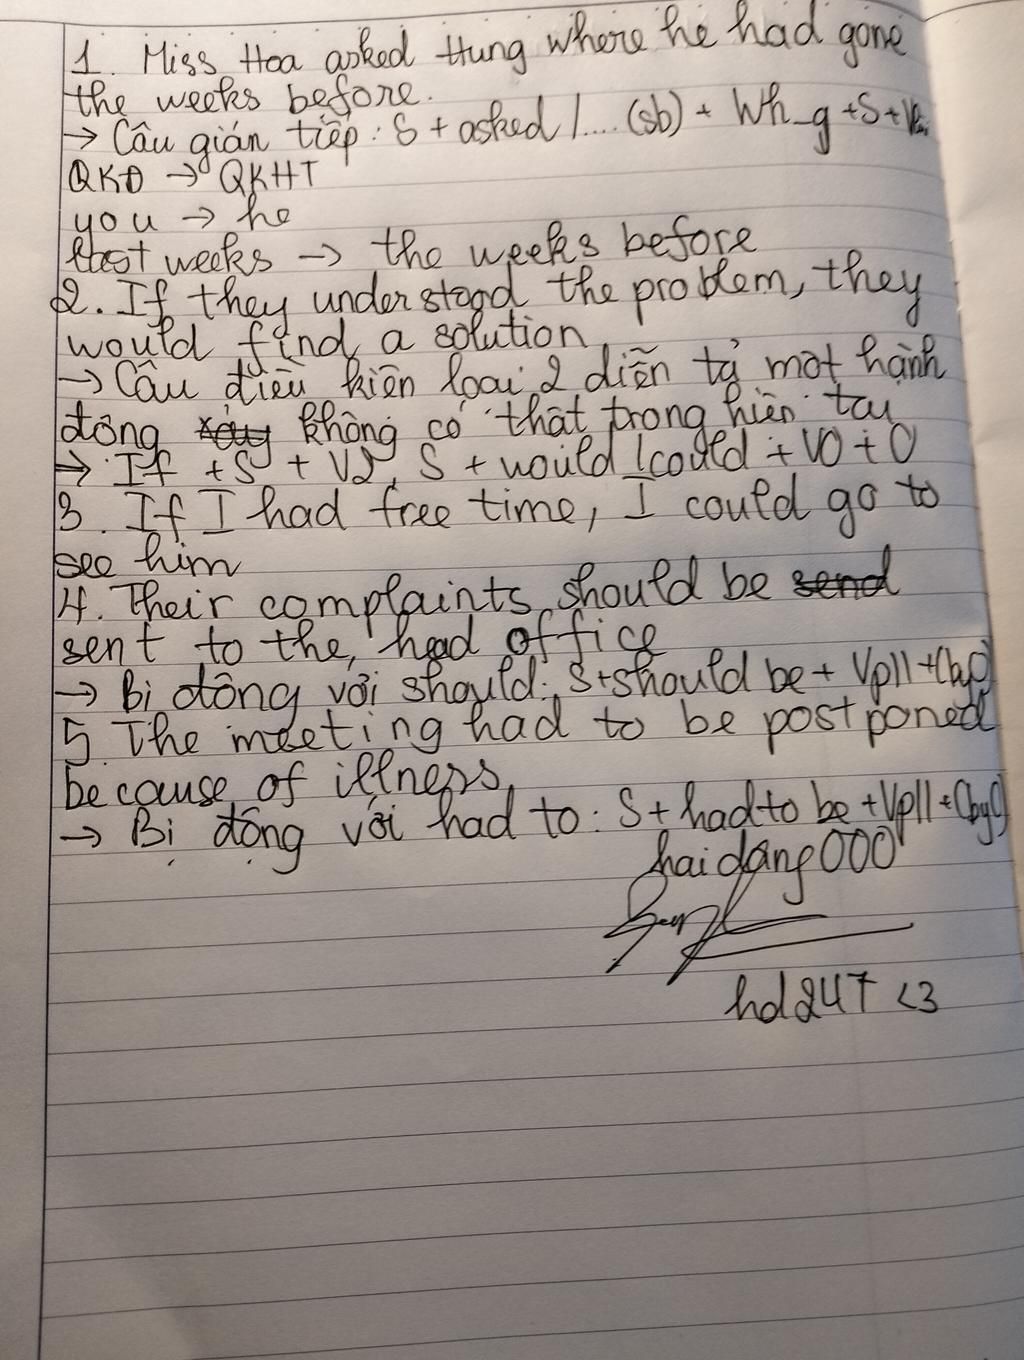 1. Miss Hoa asked Hung where he had gone
the weeks before.
→ Câu gián tiếp: S + asked /.... (sb) + Wh_q + S + V
QKĐ → QKHT
you → he
last weeks → the weeks before
2. If they understood the problem, they
would find a solution
→ Câu điều kiện loại 2 diễn tả một hành
động xảy không có thật trong hiện tại
→ If + S + V2, S + would / could + V0 + O
3. If I had free time, I could go to
see him
4. Their complaints should be send
sent to the head office
→ Bị động với should: S + should be + VpII + (by O)
5. The meeting had to be postponed
because of illness
→ Bị động với had to: S + had to be + VpII + (by O)
haidang000
hd247 <3